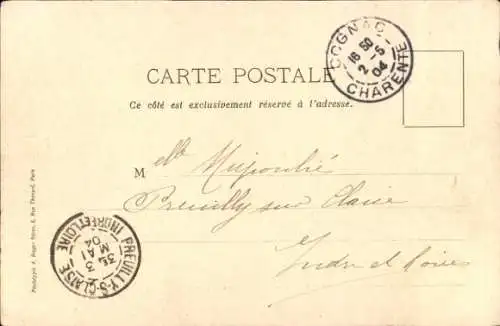 COGNAC
16 50
2 -5-
04
CHARENTE
CARTE POSTALE
Ce côté est exclusivement réservé à l'adresse.
Mlle
Preuilly sur Claise
Indre et Loire
PREUILLY-S-CLAISE
3 MAI
04
INDRE ET LOIRE